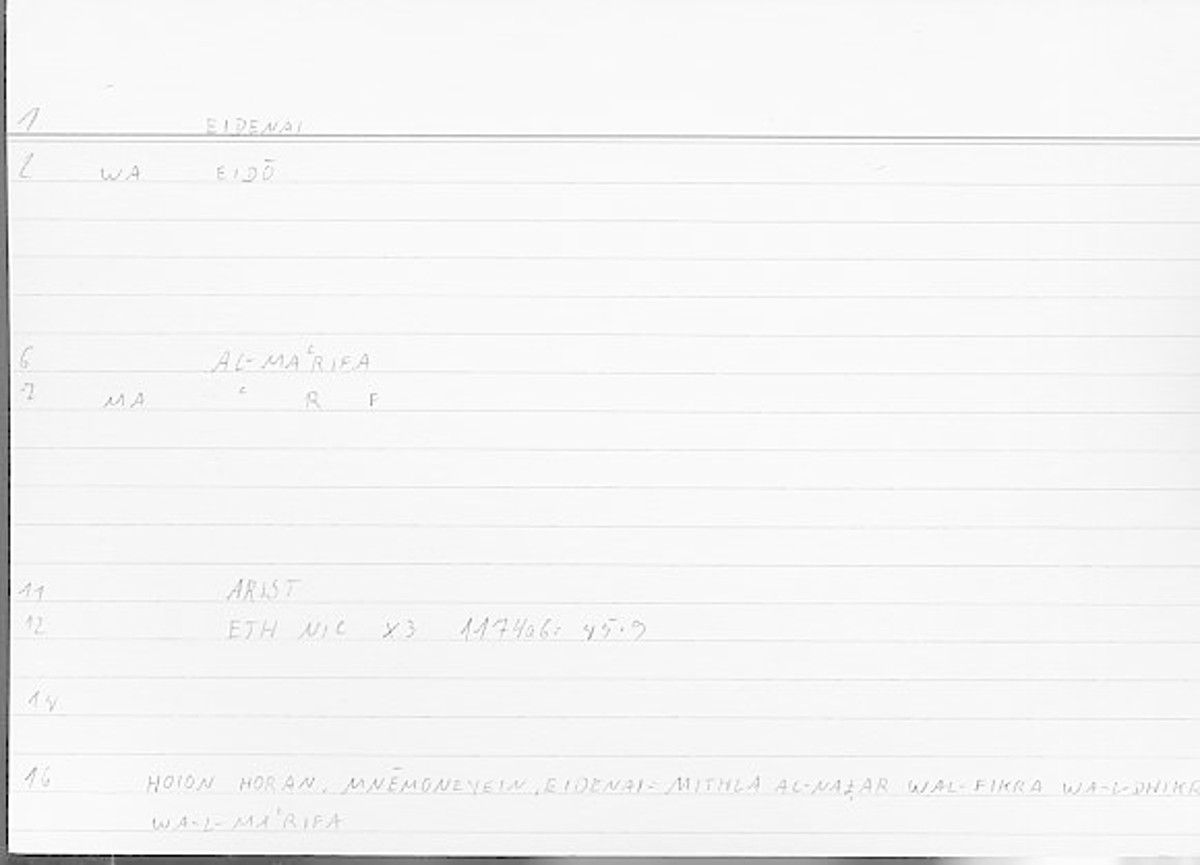 1 EIDENAI
2 WA EIDŌ
6 AL-MAʿRIFA
7 MA ʿ R F
11 ARIST
12 ETH NIC X3 1174a6: 45.9
14
16 HOION HORAN, MNĒMONEYEIN, EIDENAI= MITHLA AL-NAẒAR WAL-FIKRA WA-L-DHIKR
WA-L-MAʿRIFA